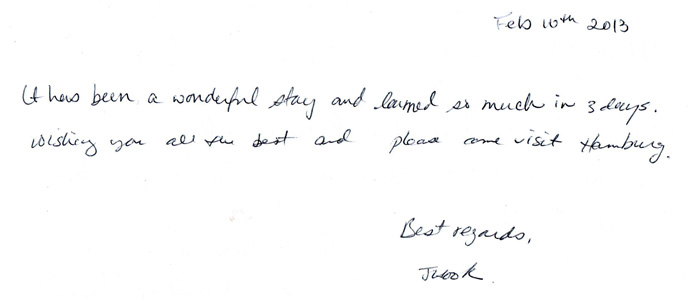 Feb 10th 2013
It has been a wonderful stay and learned so much in 3 days.
Wishing you all the best and please come visit Hamburg.
Best regards,